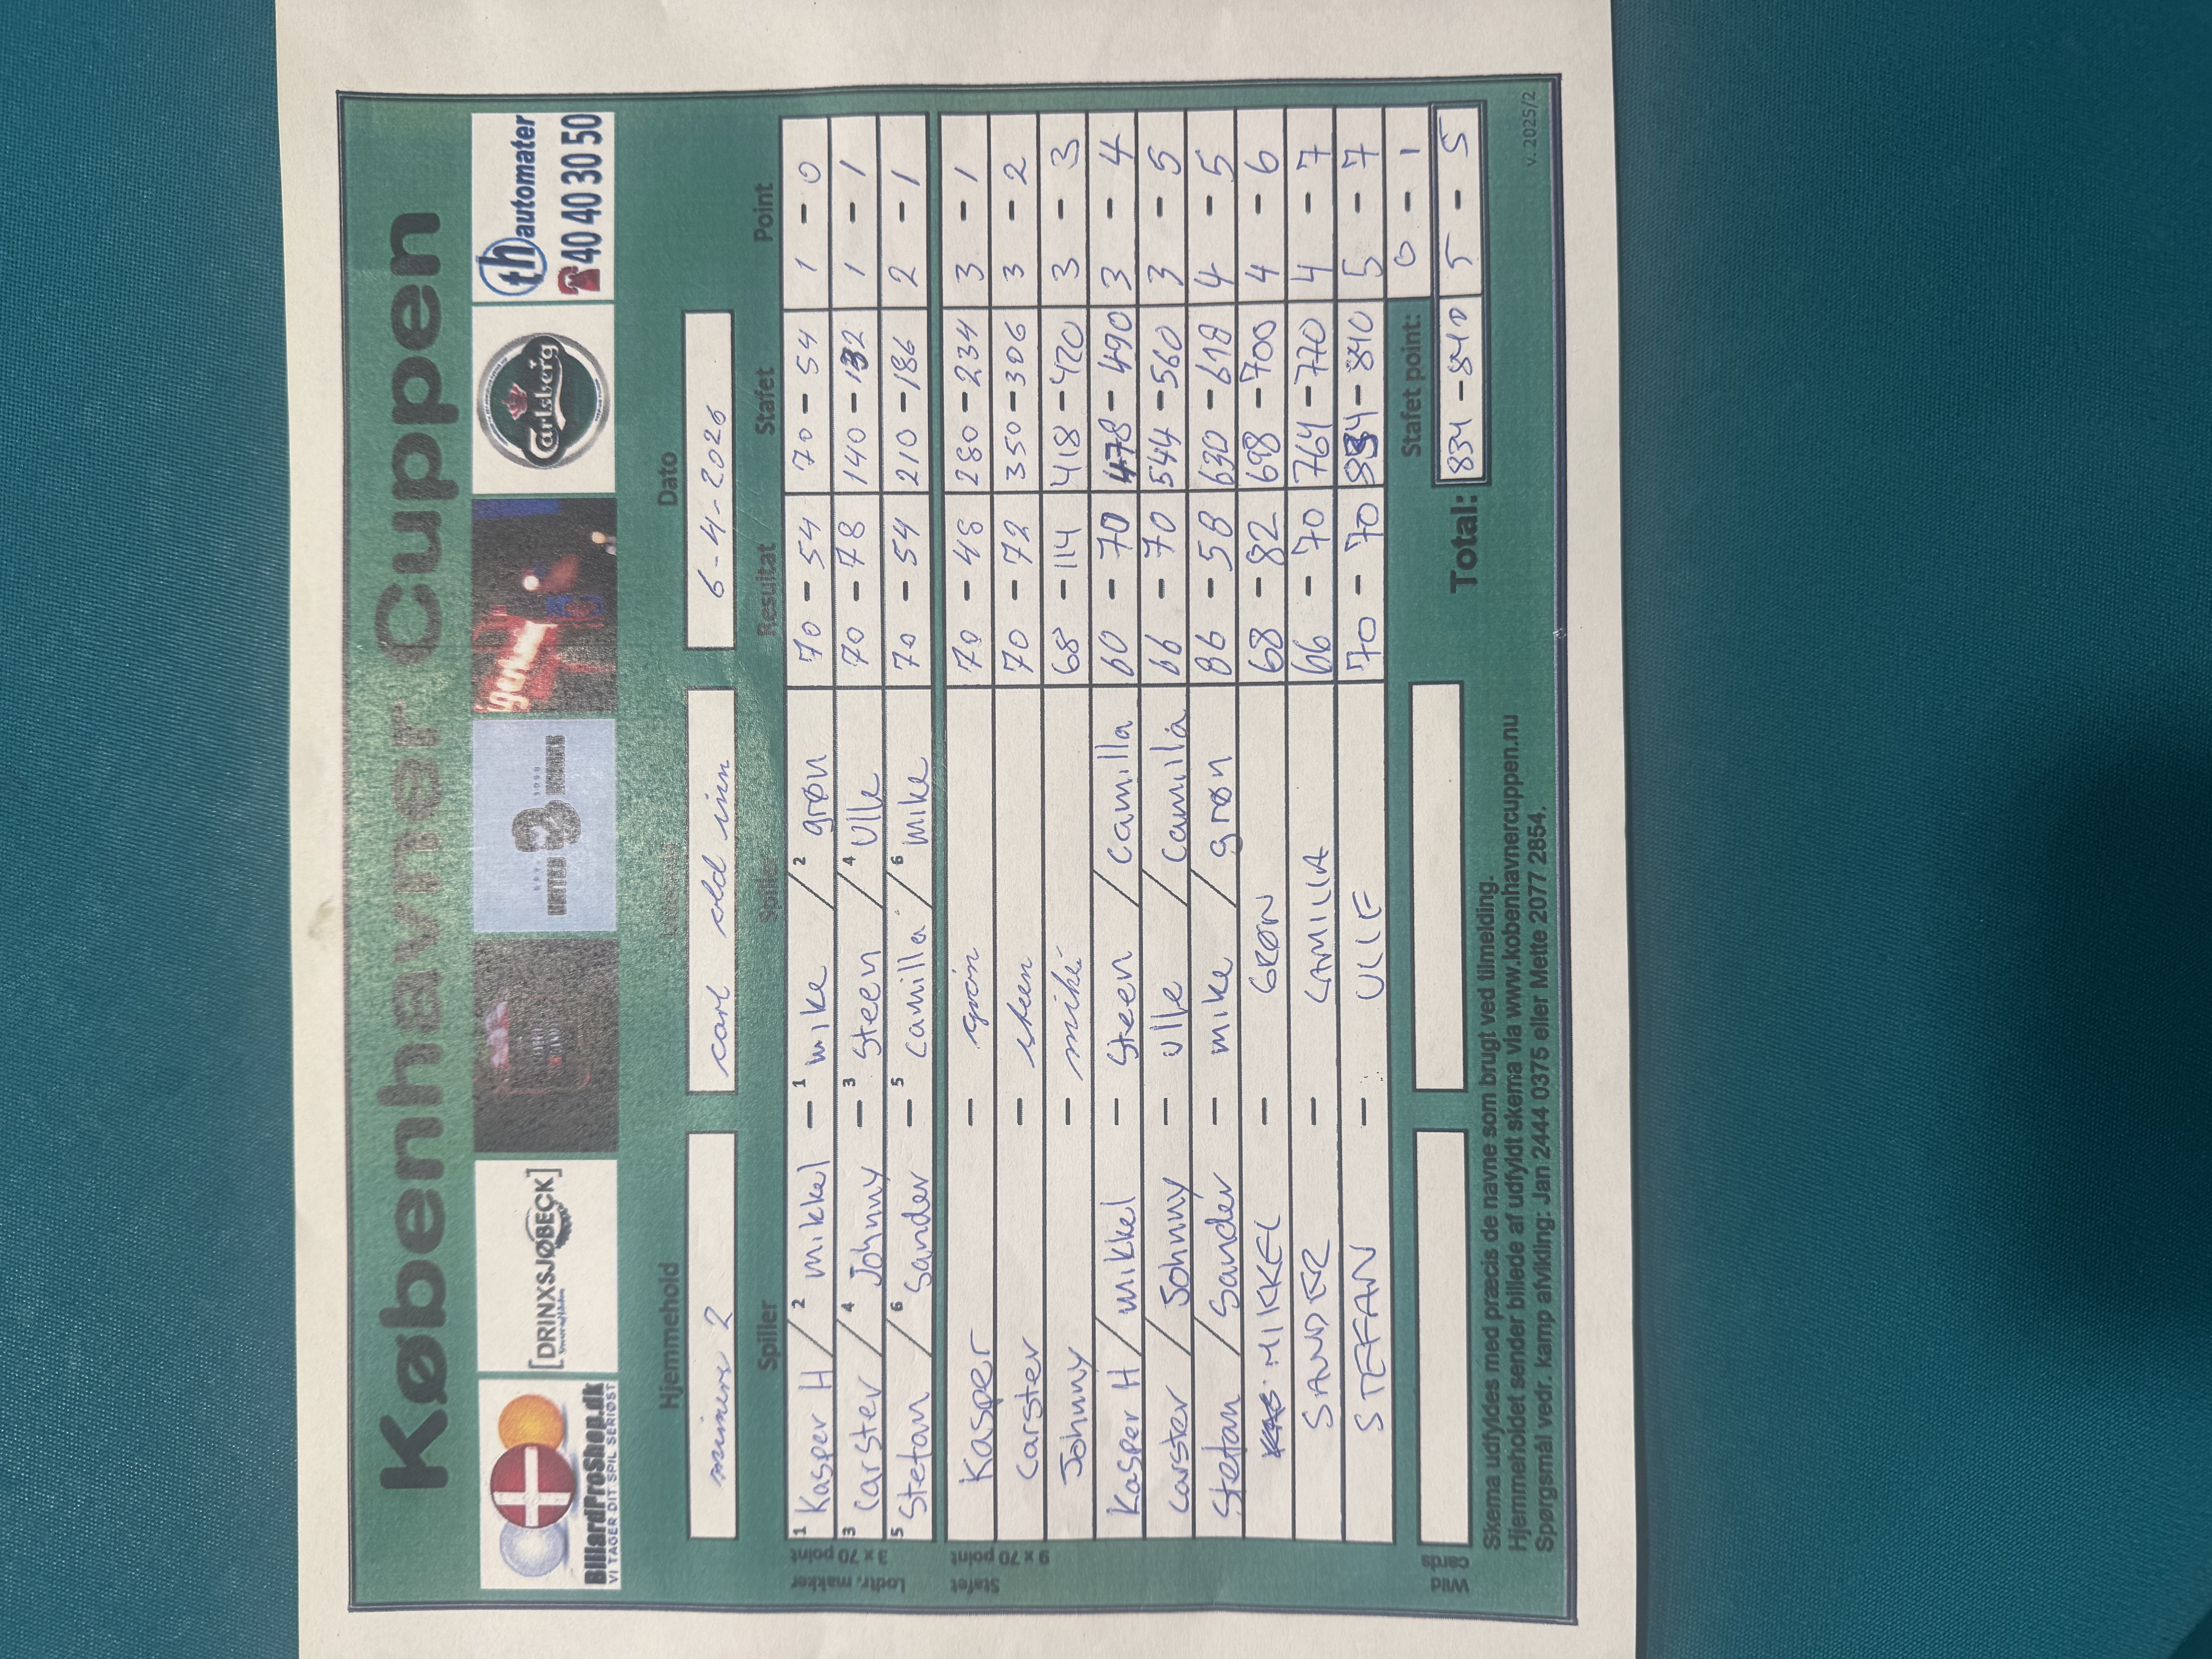 Københavner Cuppen
BilliardProShop.dk
VI TAGER DIT SPIL SERIØST
[DRINXSJØBECK]
Carlsberg
th automater
40 40 30 50
Hjemmehold Udehold Dato
miners 2 carl old inn 6-4-2026
Spiller Spiller Resultat Stafet Point
Lodtr. makker 3 x 70 point
1 Kasper H / 2 mikkel - 1 mike / 2 grøn 70 - 54 70 - 54 1 - 0
3 Carster / 4 Johnny - 3 Steen / 4 Ulle 70 - 78 140 - 132 1 - 1
5 Stefan / 6 Sander - 5 Camilla / 6 mike 70 - 54 210 - 186 2 - 1
Stafet 9 x 70 point
Kasper - grøn 70 - 48 280 - 234 3 - 1
Carster - steen 70 - 72 350 - 306 3 - 2
Johnny - mike 68 - 114 418 - 420 3 - 3
Kasper H / mikkel - Steen / Camilla 60 - 70 478 - 490 3 - 4
Carster / Johnny - Ulle / Camilla 66 - 70 544 - 560 3 - 5
Stefan / Sander - mike / grøn 86 - 58 630 - 618 4 - 5
MIKKEL - GRØN 68 - 82 698 - 700 4 - 6
SANDER - CAMILLA 66 - 70 764 - 770 4 - 7
STEFAN - ULLE 70 - 70 834 - 840 5 - 7
Stafet point: 0 - 1
Wild cards Total: 834 - 840 5 - 5
Skema udfyldes med præcis de navne som brugt ved tilmelding.
Hjemmeholdet sender billede af udfyldt skema via www.kobenhavnercuppen.nu
Spørgsmål vedr. kamp afvikling: Jan 2444 0375 eller Mette 2077 2854.
v. 2025/2